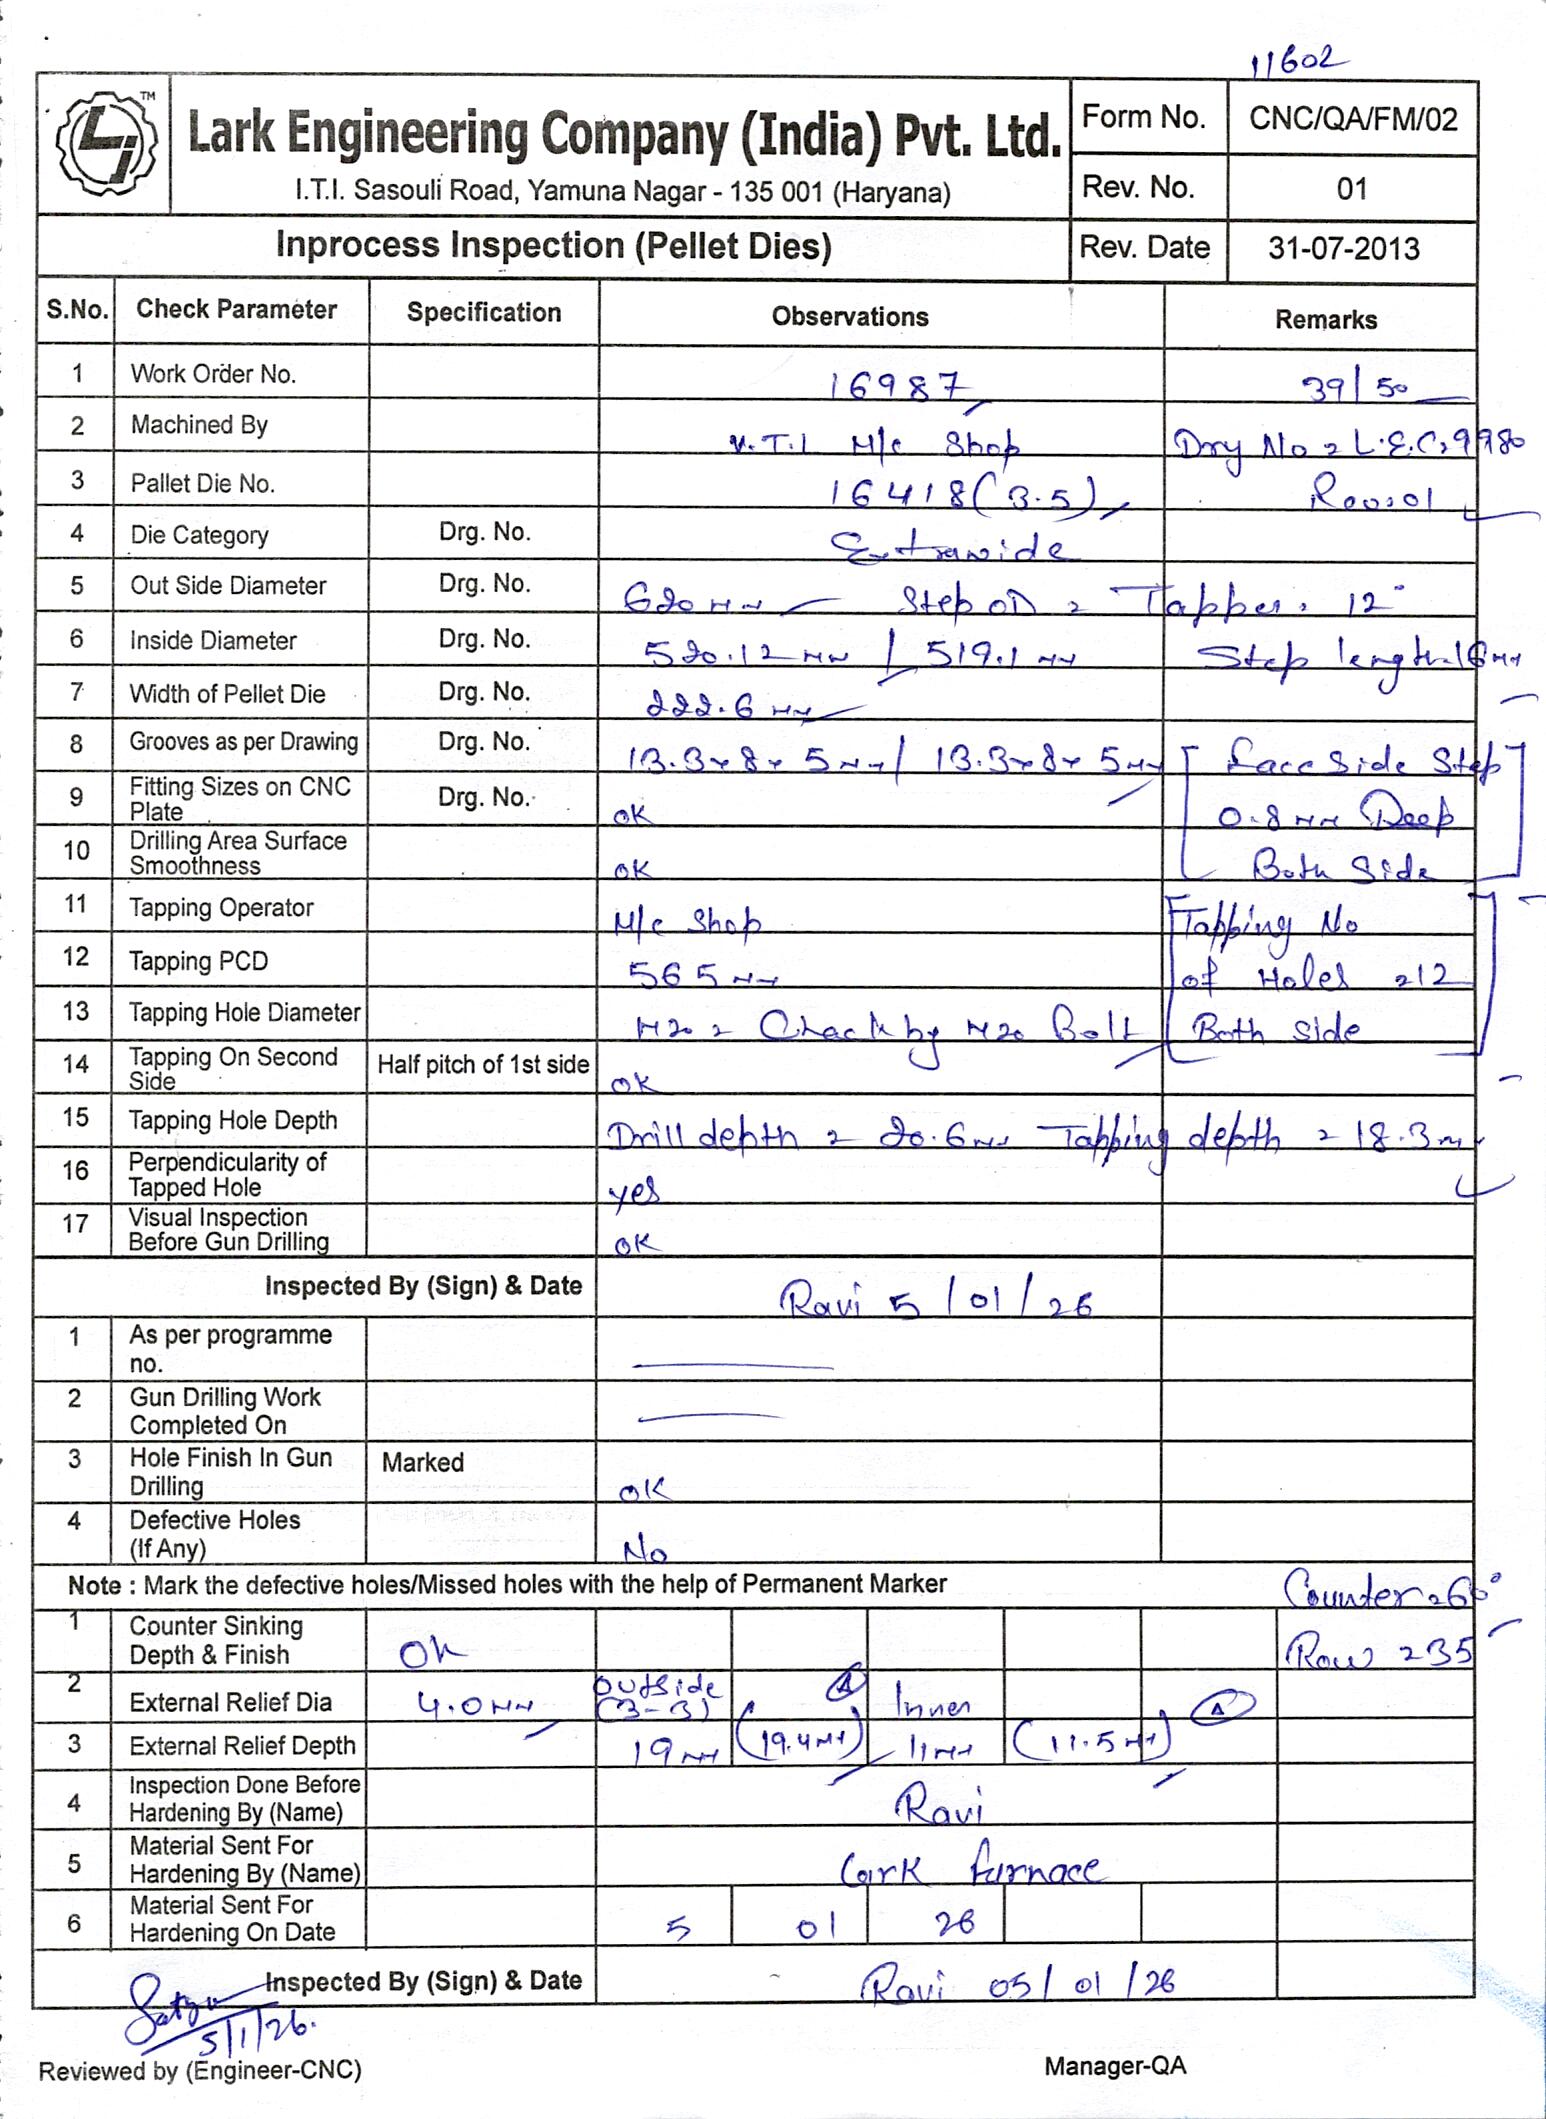 11602
TM
Lark Engineering Company (India) Pvt. Ltd.
I.T.I. Sasouli Road, Yamuna Nagar - 135 001 (Haryana)
Form No. CNC/QA/FM/02
Rev. No. 01
Inprocess Inspection (Pellet Dies) Rev. Date 31-07-2013
S.No. Check Parameter Specification Observations Remarks
1 Work Order No. 16987 39/50
2 Machined By M/c Shop L.E.C. 9980
3 Pallet Die No. 16418 (3.5)
4 Die Category Drg. No. Extrawide
5 Out Side Diameter Drg. No. 620 mm Step OD = Tapper. 12°
6 Inside Diameter Drg. No. 520.12 mm / 519.1 mm Step length = 16 mm
7 Width of Pellet Die Drg. No. 222.6 mm
8 Grooves as per Drawing Drg. No. 13.3 x 8 x 5 mm / 13.3 x 8 x 5 mm Face Side Step
9 Fitting Sizes on CNC Plate Drg. No. OK 0.8 mm Deep
10 Drilling Area Surface Smoothness OK Both Side
11 Tapping Operator M/c Shop Tapping No
12 Tapping PCD 565 mm of Holes = 12
13 Tapping Hole Diameter M20 = Check by M20 Bolt Both Side
14 Tapping On Second Side Half pitch of 1st side OK
15 Tapping Hole Depth Drill depth = 20.6 mm Tapping depth = 18.3 mm
16 Perpendicularity of Tapped Hole yes
17 Visual Inspection Before Gun Drilling OK
Inspected By (Sign) & Date Ravi 5/01/26
1 As per programme no.
2 Gun Drilling Work Completed On
3 Hole Finish In Gun Drilling Marked OK
4 Defective Holes (If Any) No
Note : Mark the defective holes/Missed holes with the help of Permanent Marker Counter = 60°
1 Counter Sinking Depth & Finish OK Row = 235
2 External Relief Dia 4.0 mm Outside (3-3) A Inner A
3 External Relief Depth 19 mm (19.4 mm) 11 mm (11.5 mm)
4 Inspection Done Before Hardening By (Name) Ravi
5 Material Sent For Hardening By (Name) Lark furnace
6 Material Sent For Hardening On Date 5 01 26
Inspected By (Sign) & Date Ravi 05/01/26
5/1/26.
Reviewed by (Engineer-CNC) Manager-QA